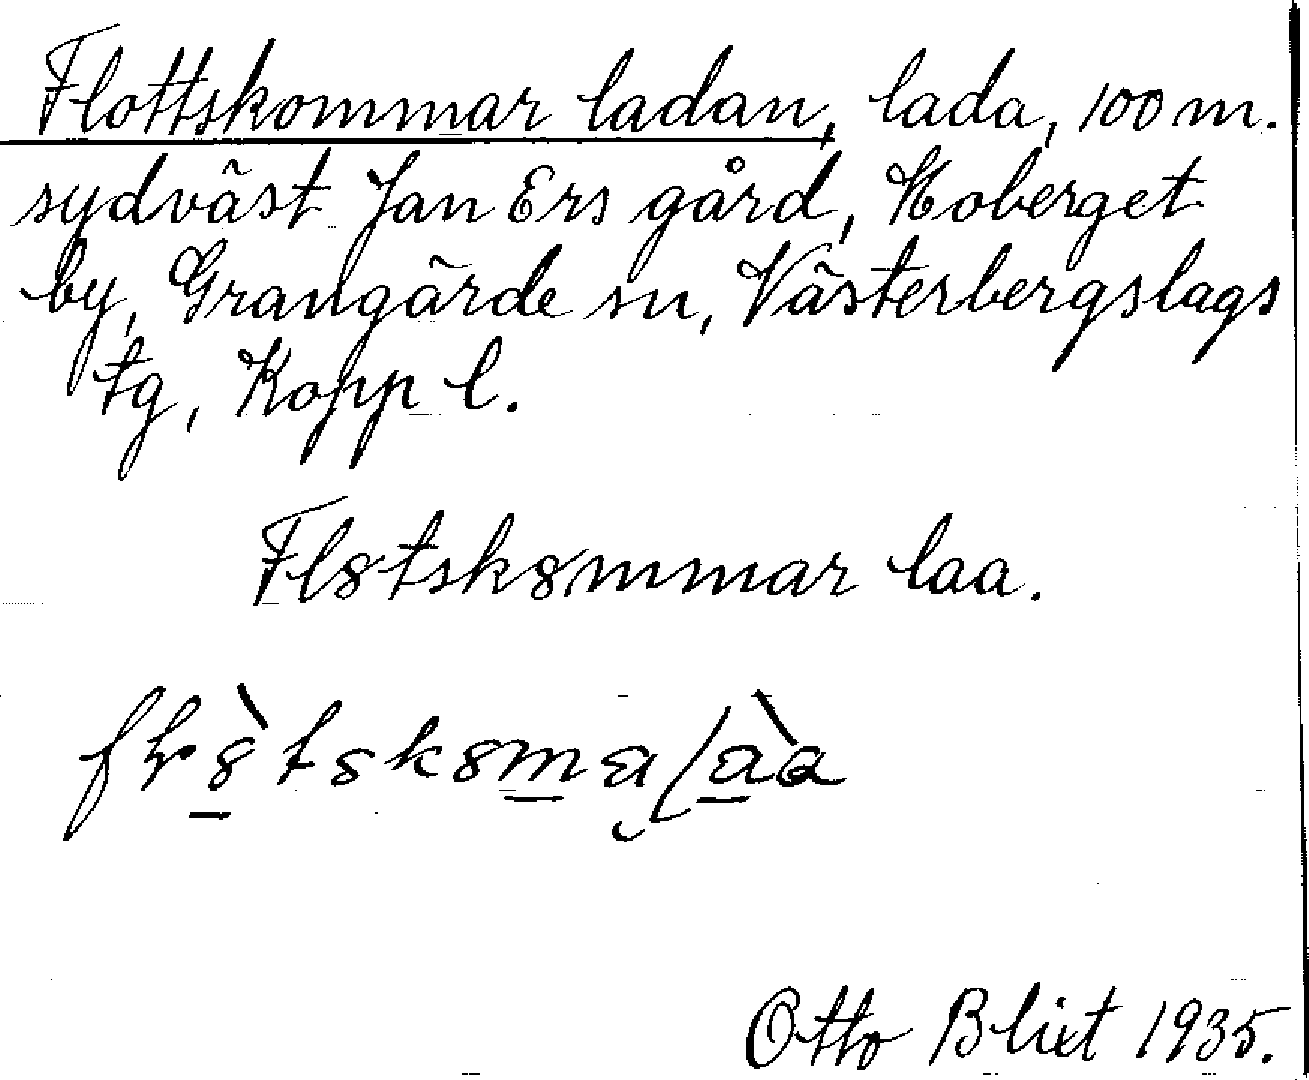 Flottskommar ladan, lada, 100 m.
sydväst Jan Ers gård, Moberget
by, Grangärde sn, Västerbergslags
tg, Kopp l.
Fl8tsk8mmar laa.
Otto Blixt 1935.